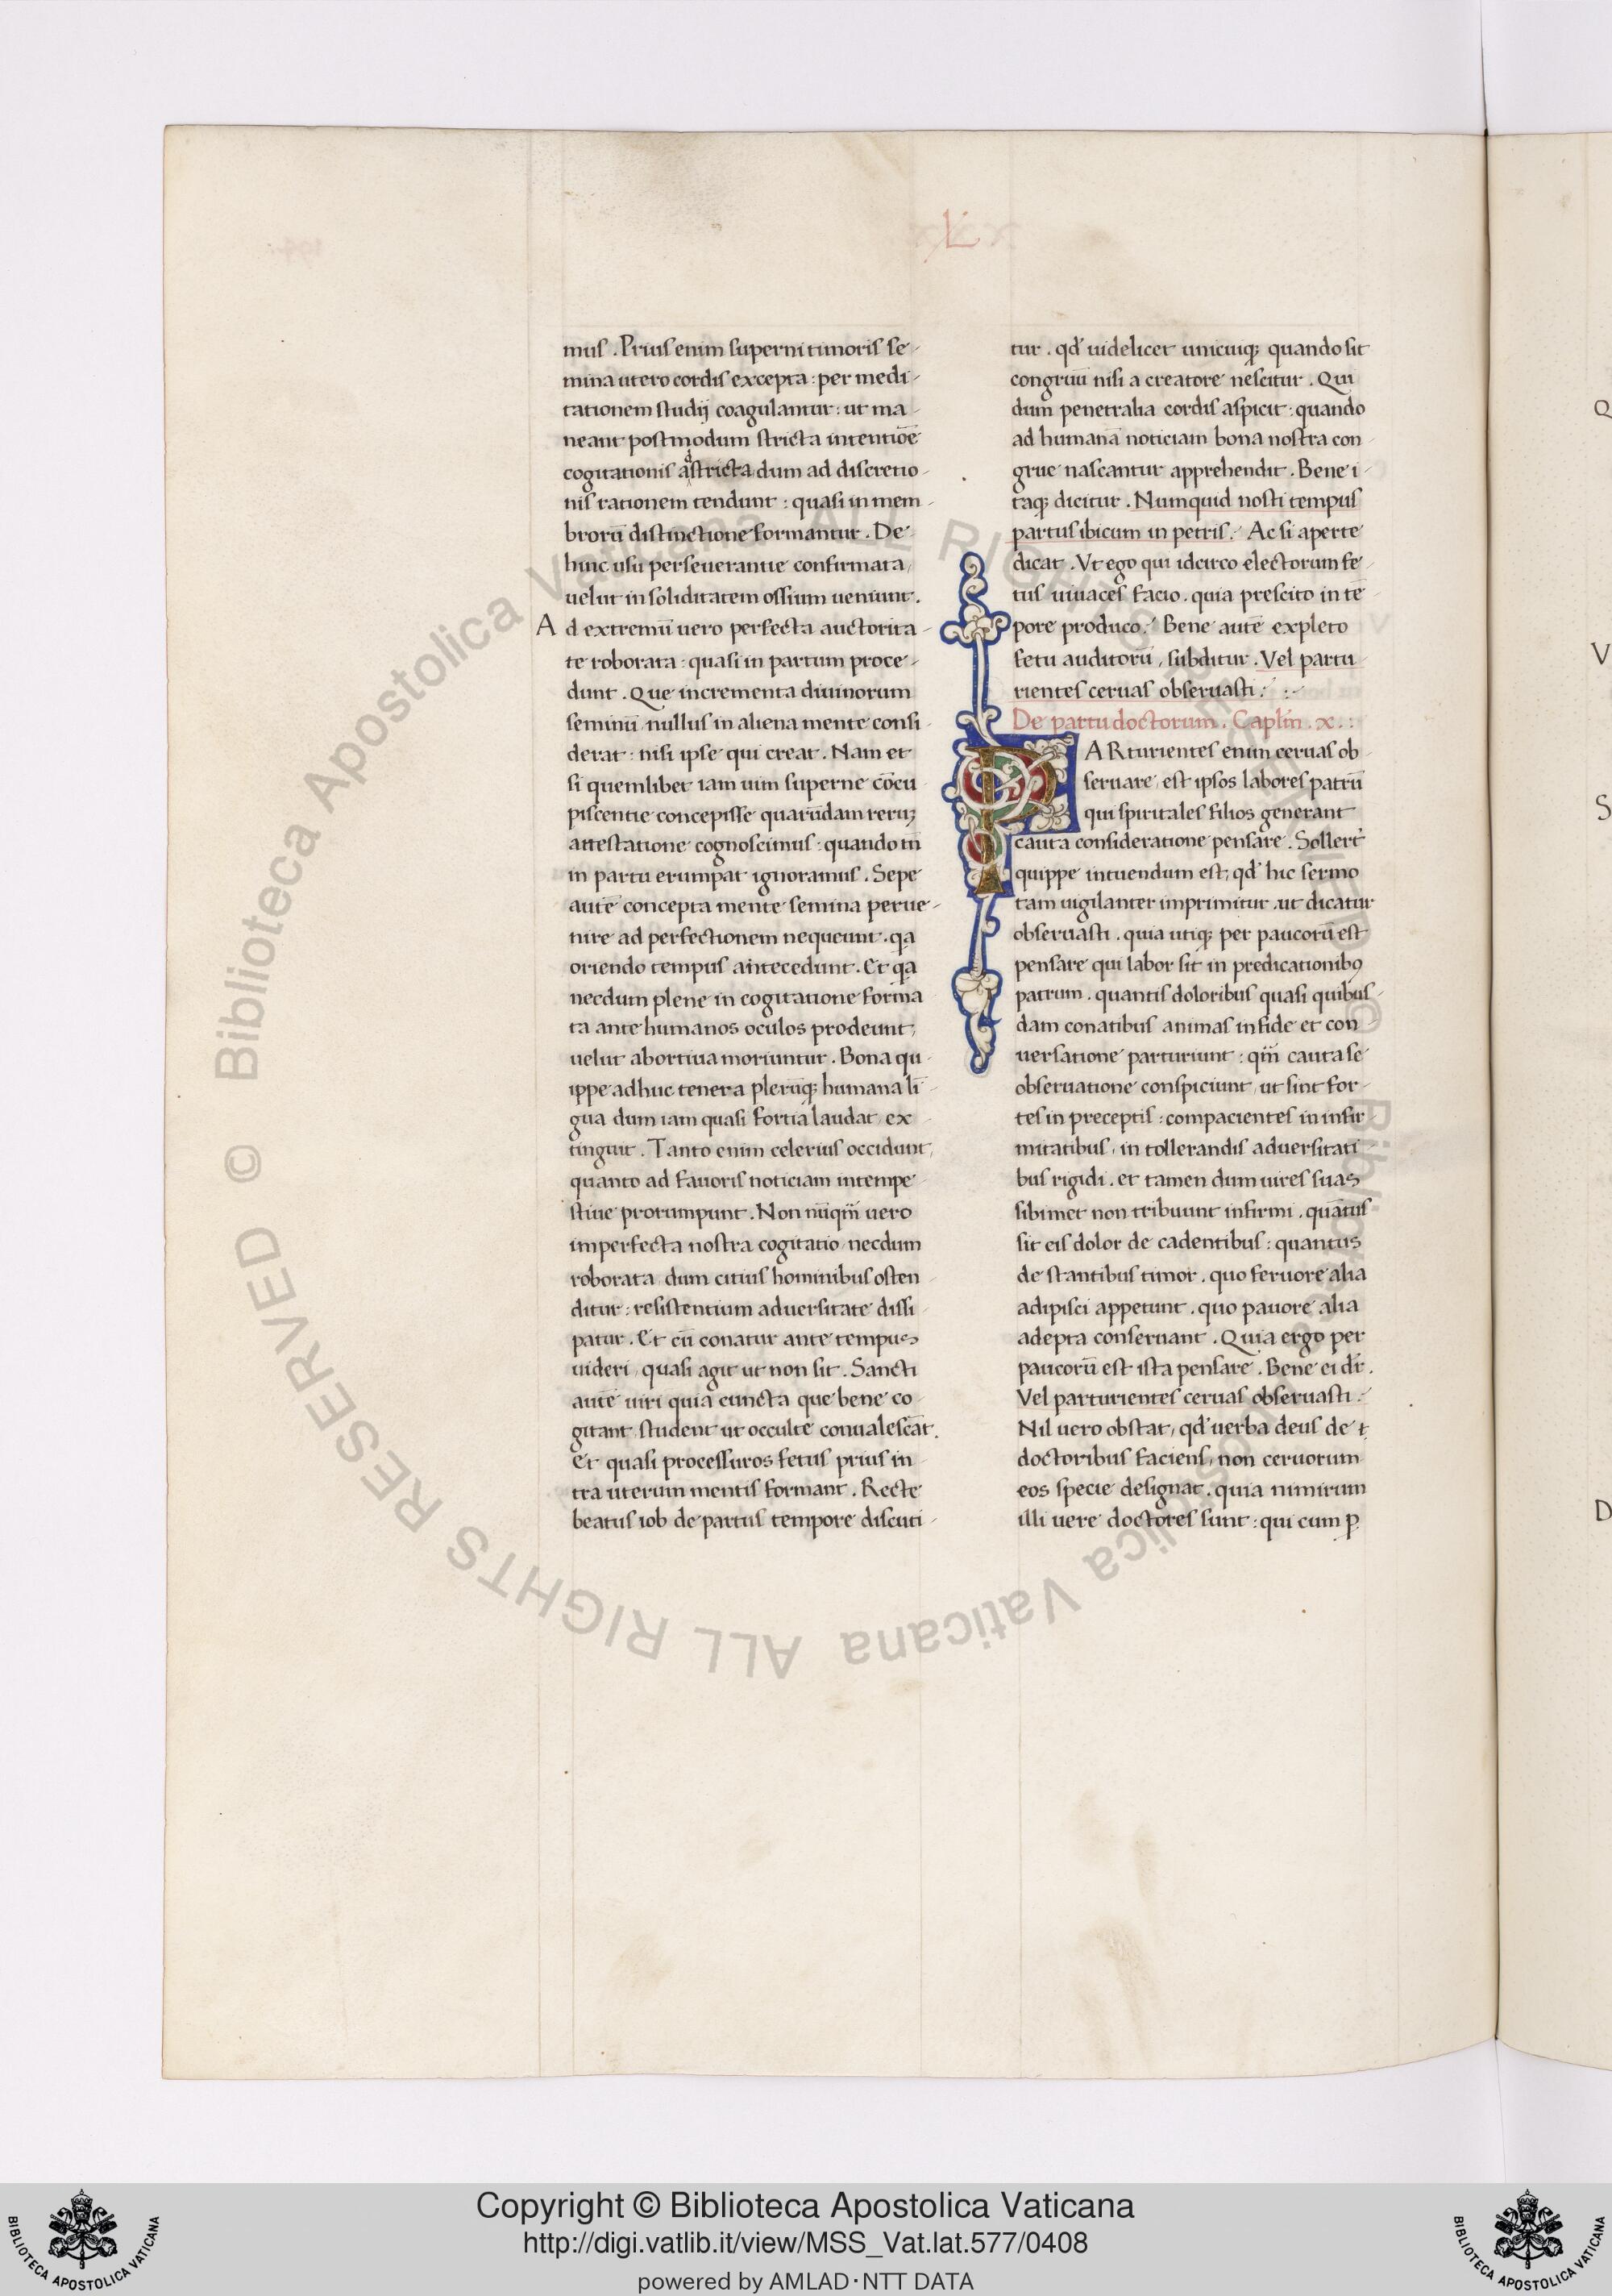 L
mus . Prius enim superni timoris se-
mina utero cordis excepta : per medi-
tationem studij coagulantur : ut ma-
neant postmodum stricta intentiōe
cogitationis adstricta dum ad discretio-
nis rationem tendunt : quasi in mem-
brorū distinctione formantur . De-
hinc usu perseuerantie confirmata,
uelut in soliditatem ossium ueniunt .
Ad extremū uero perfecta auctorita-
te roborata : quasi in partum proce-
dunt . Que incrementa diuinorum
seminū, nullus in aliena mente consi-
derat : nisi ipse qui creat . Nam et
si quemlibet iam uim superne cōcu-
piscentie concepisse quarūdam reruꝫ
attestatione cognoscimus : quando tn̄
in partu erumpat ignoramus . Sepe
autē concepta mente semina perue-
nire ad perfectionem nequeunt . qa
oriendo tempus antecedunt . Et qa
necdum plene in cogitatione forma
ta ante humanos oculos prodeunt,
uelut abortiua moriuntur . Bona qu-
ippe adhuc tenera plerūqꝫ humana lī-
gua dum iam quasi fortia laudat, ex-
tinguit . Tanto enim celerius occidunt,
quanto ad fauoris noticiam intempe-
stiue prorumpunt . Non nūqm̄ uero
imperfecta nostra cogitatio, necdum
roborata, dum citius hominibus osten-
ditur : resistentium aduersitate dissi-
patur . Et cū conatur ante tempus
uideri, quasi agit ut non sit . Sancti
autē uiri quia cuncta que bene co-
gitant, student ut occulte conualescāt .
Et quasi processuros fetus prius in-
tra uterum mentis formant . Recte
beatus iob de partus tempore discuti-
tur . qd' uidelicet unicuiqꝫ quando sit
congruū nisi a creatore nescitur . Qui
dum penetralia cordis aspicit : quando
ad humanā noticiam bona nostra con-
grue nascantur apprehendit . Bene i-
taqꝫ dicitur . Numquid nosti tempus
partus ibicum in petris . Ac si aperte
dicat . Vt ego qui idcirco electorum fe-
tus uiuaces facio . quia prescito in tē-
pore produco . Bene autē expleto
fetu auditorū, subditur . Vel partu-
rientes ceruas obseruasti :
De partu doctorum . Caplm̄ . x . :
PARturientes enim ceruas ob-
seruare, est ipsos labores patrū
qui spiritales filios generant
cauta consideratione pensare . Sollert'
quippe intuendum est, qd' hic sermo
tam uigilanter imprimitur . ut dicatur
obseruasti . quia utiqꝫ per paucorū est
pensare qui labor sit in predicationibꝰ
patrum . quantis doloribus quasi quibus-
dam conatibus animas in fide et con-
uersatione parturiunt : qm̄ cauta se
obseruatione conspiciunt, ut sint for-
tes in preceptis : compacientes in infir-
mitatibus, in tollerandis aduersitati-
bus rigidi . et tamen dum uires suas
sibimet non tribuunt infirmi . quātus
sit eis dolor de cadentibus : quantus
de stantibus timor . quo feruore alia
adipisci appetunt . quo pauore alia
adepta conseruant . Quia ergo per
paucorū est ista pensare . Bene ei dr̄ .
Vel parturientes ceruas obseruasti .
Nil uero obstat, qd' uerba deus de
doctoribus faciens, non ceruorum
eos specie designat . quia nimirum
illi uere doctores sunt : qui cum ꝑ
Q
V
S
D
© Biblioteca Apostolica Vaticana ALL RIGHTS RESERVED
© Biblioteca Apostolica Vaticana ALL RIGHTS RESERVED
BIBLIOTECA APOSTOLICA VATICANA
Copyright © Biblioteca Apostolica Vaticana
http://digi.vatlib.it/view/MSS_Vat.lat.577/0408
powered by AMLAD·NTT DATA
BIBLIOTECA APOSTOLICA VATICANA